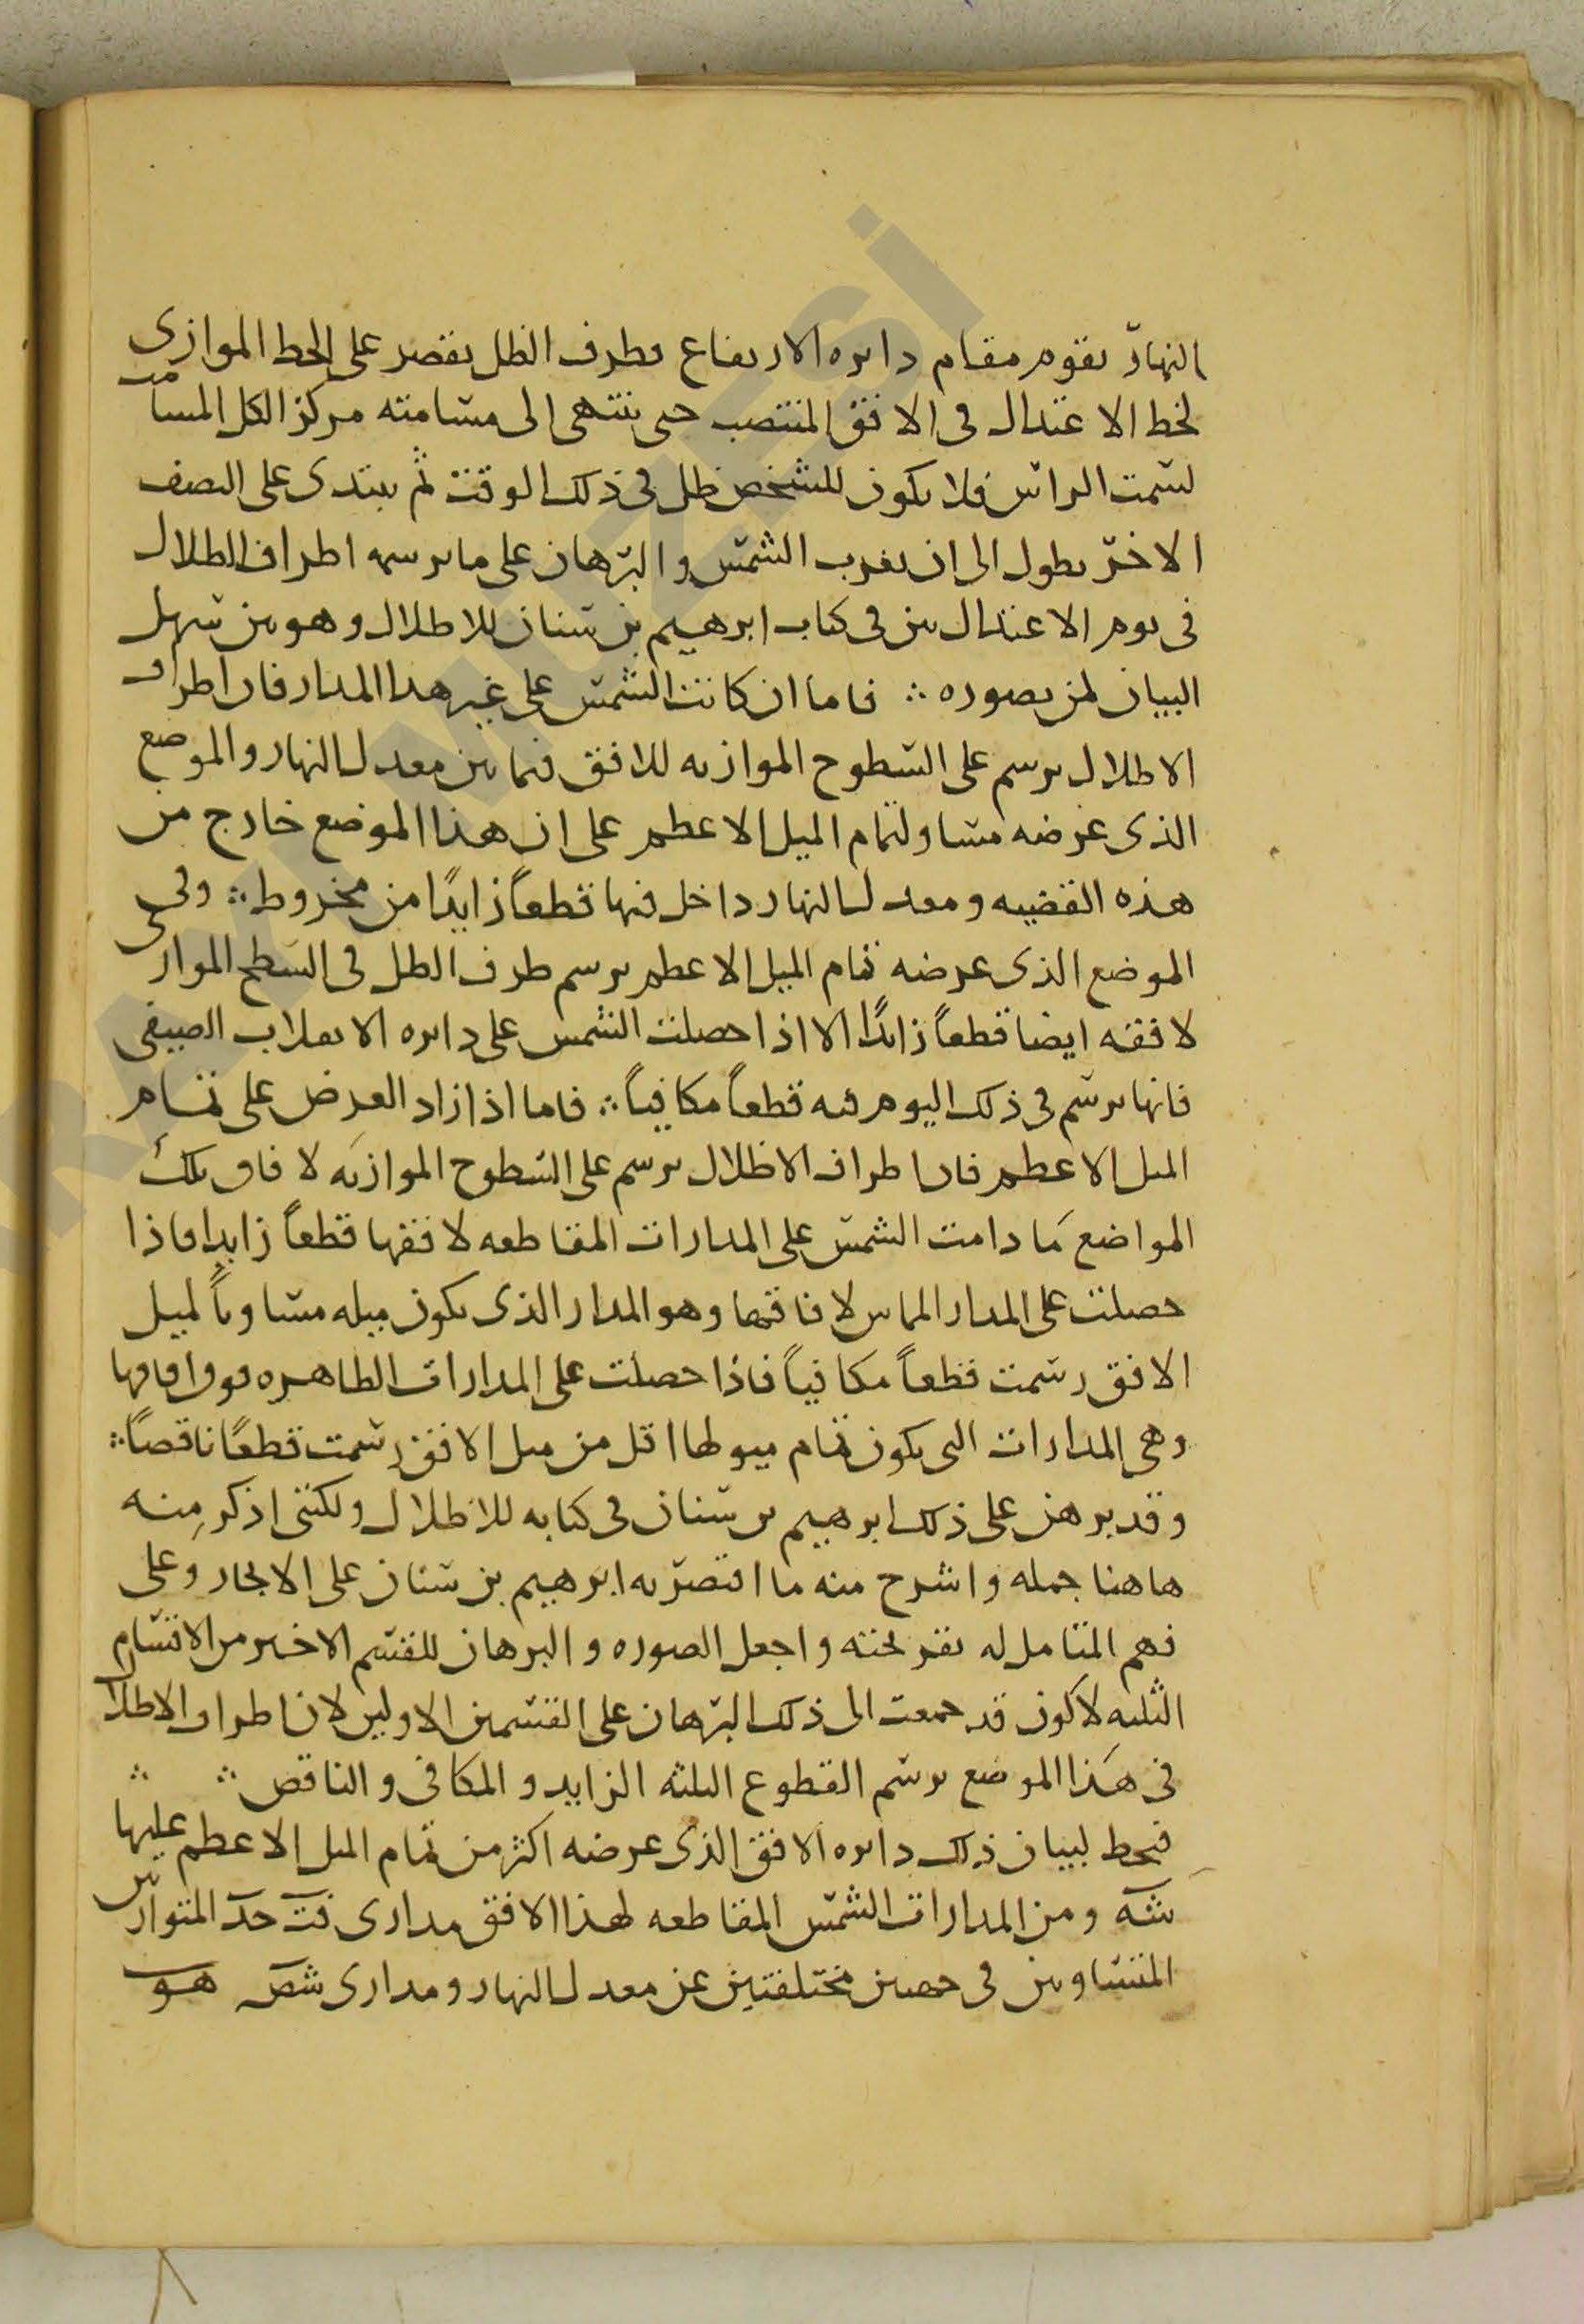 النهار يقوم مقام دايره الارتفاع فطرف الظل يقصر على الخط الموازى
لخط الاعتدال فى الافق المنتصب حتى ينتهى الى مسامته مركز الكل المسامت
لسمت الراس فلا يكون للشخص ظل فى ذلك الوقت ثم يبتدى على النصف
الاخر يطول الى ان يغرب الشمس والبرهان على ما يرسمه اطراف الظلال
فى يوم الاعتدال بين فى كتاب ابرهيم بن سنان للاظلال وهو بين سهل
البيان لمن تصوره ∴ فاما ان كانت الشمس على غير هذا المدار فان اطراف
الاظلال يرسم على السطوح الموازيه للافق فيما بين معدل النهار والموضع
الذى عرضه مساو لتمام الميل الاعظم على ان هذا الموضع خارج من
هذه القضيه ومعدل النهار داخل فيها قطعاً زايداً من مخروط ∴ وفى
الموضع الذى عرضه تمام الميل الاعظم يرسم طرف الظل فى السطح الموازى
لافقه ايضا قطعاً زايداً الا اذا حصلت الشمس على دايره الانقلاب الصيفى
فانها يرسم فى ذلك اليوم فيه قطعاً مكافياً ∴ فاما اذا زاد العرض على تمام
الميل الاعظم فان اطراف الاظلال يرسم على السطوح الموازيه لافاق تلك
المواضع ما دامت الشمس على المدارات المقاطعه لافقها قطعاً زايدا فاذا
حصلت على المدار المماس لافاقها وهو المدار الذى يكون ميله مساوياً لميل
الافق رسمت قطعاً مكافياً فاذا حصلت على المدارات الظاهره فوق افاقها
وهى المدارات التى يكون تمام ميولها اقل من ميل الافق رسمت قطعاً ناقصاً ∴
وقد برهن على ذلك ابرهيم بن سنان فى كتابه للاظلال ولكننى اذكر منه
هاهنا جمله واشرح منه ما اقتصر به ابرهيم بن سنان على الايجاز وعلى
فهم المتامل له بقريحته واجعل الصوره والبرهان للقسم الاخير من الاقسام
الثلثه لاكون قد جمعت الى ذلك البرهان على القسمين الاولين لان اطراف الاظلال
فى هذا الموضع يرسم القطوع الثلثه الزايد والمكافى والناقص ∴ ∴
فيخط لبيان ذلك دايره الافق الذى عرضه اكثر من تمام الميل الاعظم عليها
ومن المدارات الشمس المقاطعه لهذا الافق مدارى المتوازيين
المتساويين فى جهتين مختلفتين عن معدل النهار ومدارى